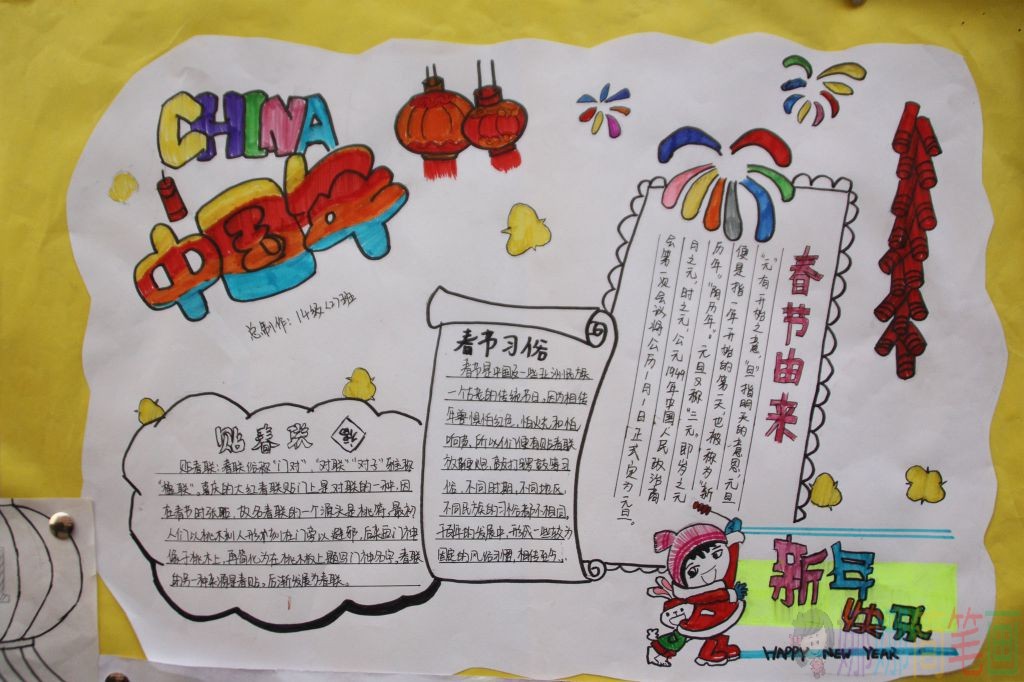 CHINA
中国年
总制作:14级(2)班
贴春联
福
贴春联:春联俗被"门对","对联""对子"
"楹联",喜庆的大红春联贴门上是对联的一种,因
在春节时张贴,故名春联的一个源头是桃符,最初
人们以桃木刻人形挂在门旁以避邪,后来画门神
像于桃木上,再简化为在桃木板上题写门神名字,春联
的另一种来源是春贴,后渐发展为春联。
春节习俗
春节是中国及一些亚洲民族
一个古老的传统节日,因为相传
年兽惧怕红色,怕火和怕
响声,所以人们便有贴春联
放鞭炮、敲打锣鼓等习
俗,不同时期,不同地区,
不同民族的习俗都不相同,
的发展中,形成一些较为
固定的风俗习惯,相传至今。
春节由来
"元"有开始之意,"旦"指明天的意思,元旦
便是指一年开始的第一天,也被称为"新
历年""阳历年"。元旦又称"三元",即岁之元
月之元,时之元,公元1949年中国人民政治商
会第一次会议将公历1月1日正式定为元旦。
新年
快乐
HAPPY NEW YEAR